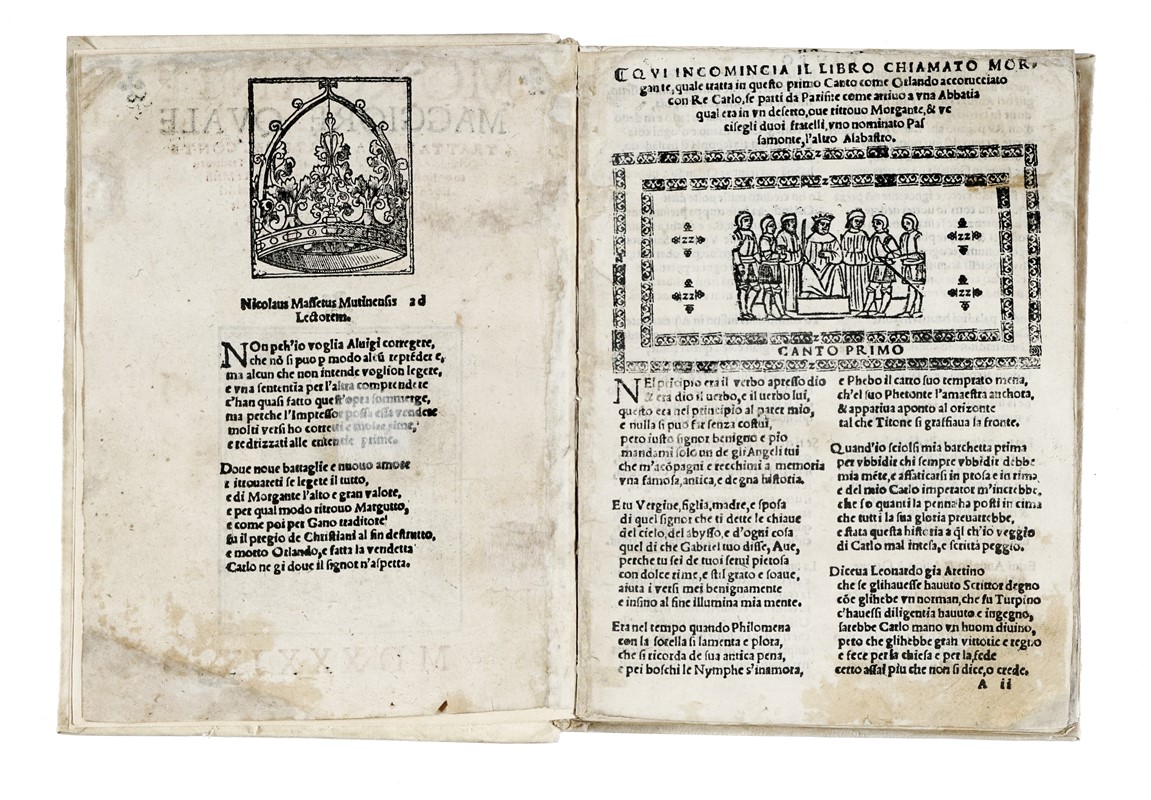 Nicolaus Massetus Mutinensis ad
Lectorem.
NOn peh'io voglia Aluigi corregere,
che nõ si puo p modo alcũ repréder e,
ma alcun che non intende voglion legere,
e vna sententia per l'altra comprendere
c'han quasi fatto que st'opra sommerge,
ma perche l'Impressor possa essa vendere
molti versi ho corretti e molte rime,
e redrizzati alle entente prime.
Doue noue battaglie e nuouo amore
e ritrouareti se legete il tutto,
e di Morgante l'alto e gran valore,
e per qual modo ritrouo Margutto,
e come poi per Gano traditore
fu il pregio de Christiani al fin destrutto,
e morto Orlando, e fatta la vendetta
Carlo ne gi doue il signor n'aspetta.
QVI INCOMINCIA IL LIBRO CHIAMATO MOR-
gante, quale tratta in questo primo Canto come Orlando accorucciato
con Re Carlo, se parti da Parisi e come arriuo a vna Abbatia
qual era in vn deserto, oue ritrouo Morgante, & vc
cisegli duoi fratelli, vno nominato Pas
samonte, l'altro Alabastro.
zz zz
zz zz
CANTO PRIMO
NEl prīcipio era il verbo apresso dio
& era dio il uerbo, e il uerbo lui,
questo era nel principio al parer mio,
e nulla si puo far senza costui,
pero iusto signor benigno e pio
mandami solo un de gli Angeli tui
che m'acōpagni e recchimi a memoria
vna famosa, antica, e degna historia.
E tu Vergine, figlia, madre, e sposa
di quel signor che ti dette le chiaue
del cielo, del abysso, e d'ogni cosa
quel di che Gabriel tuo disse, Aue,
perche tu sei de tuoi serui pietosa
con dolce rime, e stil grato e soaue,
aiuta i versi mei benignamente
e insino al fine illumina mia mente.
Era nel tempo quando Philomena
con la sorella si lamenta e plora,
che si ricorda de sua antica pena,
e pei boschi le Nymphe s'inamora,
e Phebo il carro suo temprato mena,
ch'el suo Phetonte l'amaestra anchora,
& appariua aponto al orizonte
tal che Titone si graffiaua la fronte.
Quand'io sciolsi mia barchetta prima
per vbbidir chi sempre vbbidir debbe
mia méte, e affaticarsi in prosa e in rima
e del mio Carlo imperator m'increbbe,
che so quanti la penna ha posti in cima
che tutti la sua gloria preuarrebbe,
e stata questa historia a q̃l ch'io veggio
di Carlo mal intesa, e scritta peggio.
Diceua Leonardo gia Aretino
che se glihauesse hauuto Scrittor degno
cõe glihebe vn norman, che fu Turpino
c'hauessi diligentia hauuto e ingegno,
sarebbe Carlo mano vn huom diuino,
pero che glihebbe gran vittorie e regno
e fece per la chiesa e per la fede
certo assai piu che non si dice, o crede.
A ii